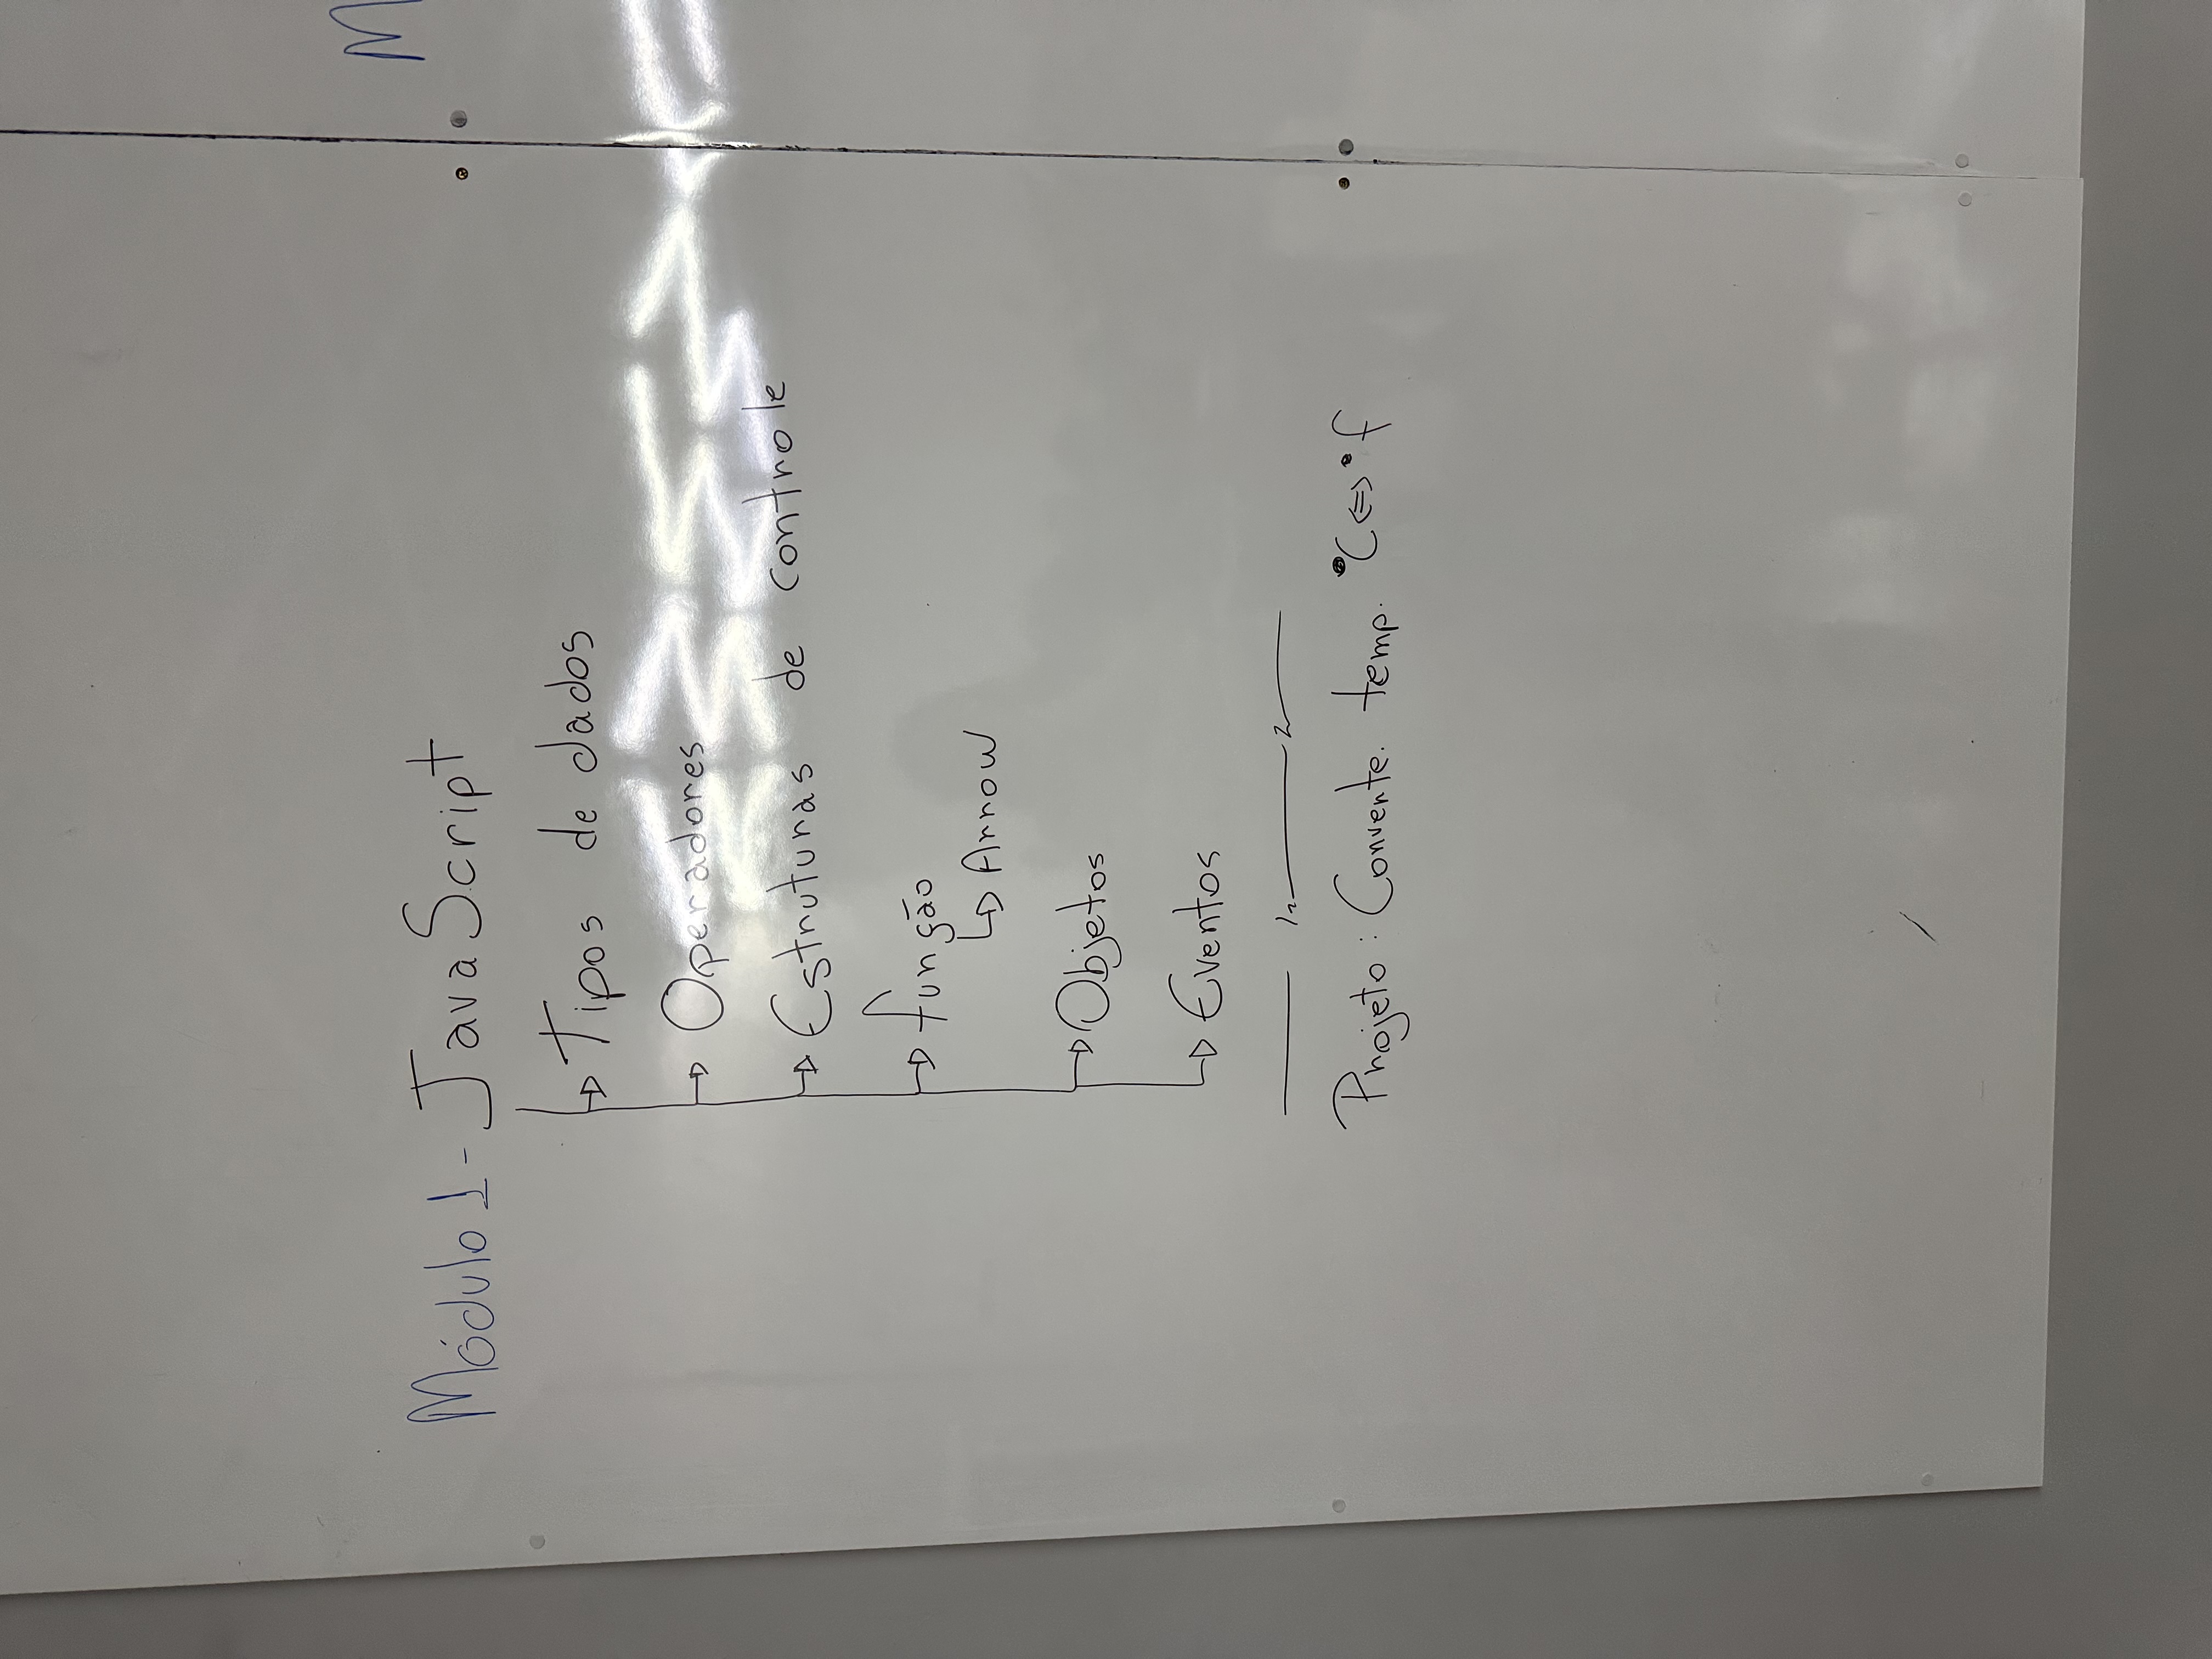 Módulo 1 - JavaScript
Tipos de dados
Operadores
Estruturas de controle
função
Arrow
Objetos
Eventos
Projeto: Converte. temp. °C ⇔ °f
M